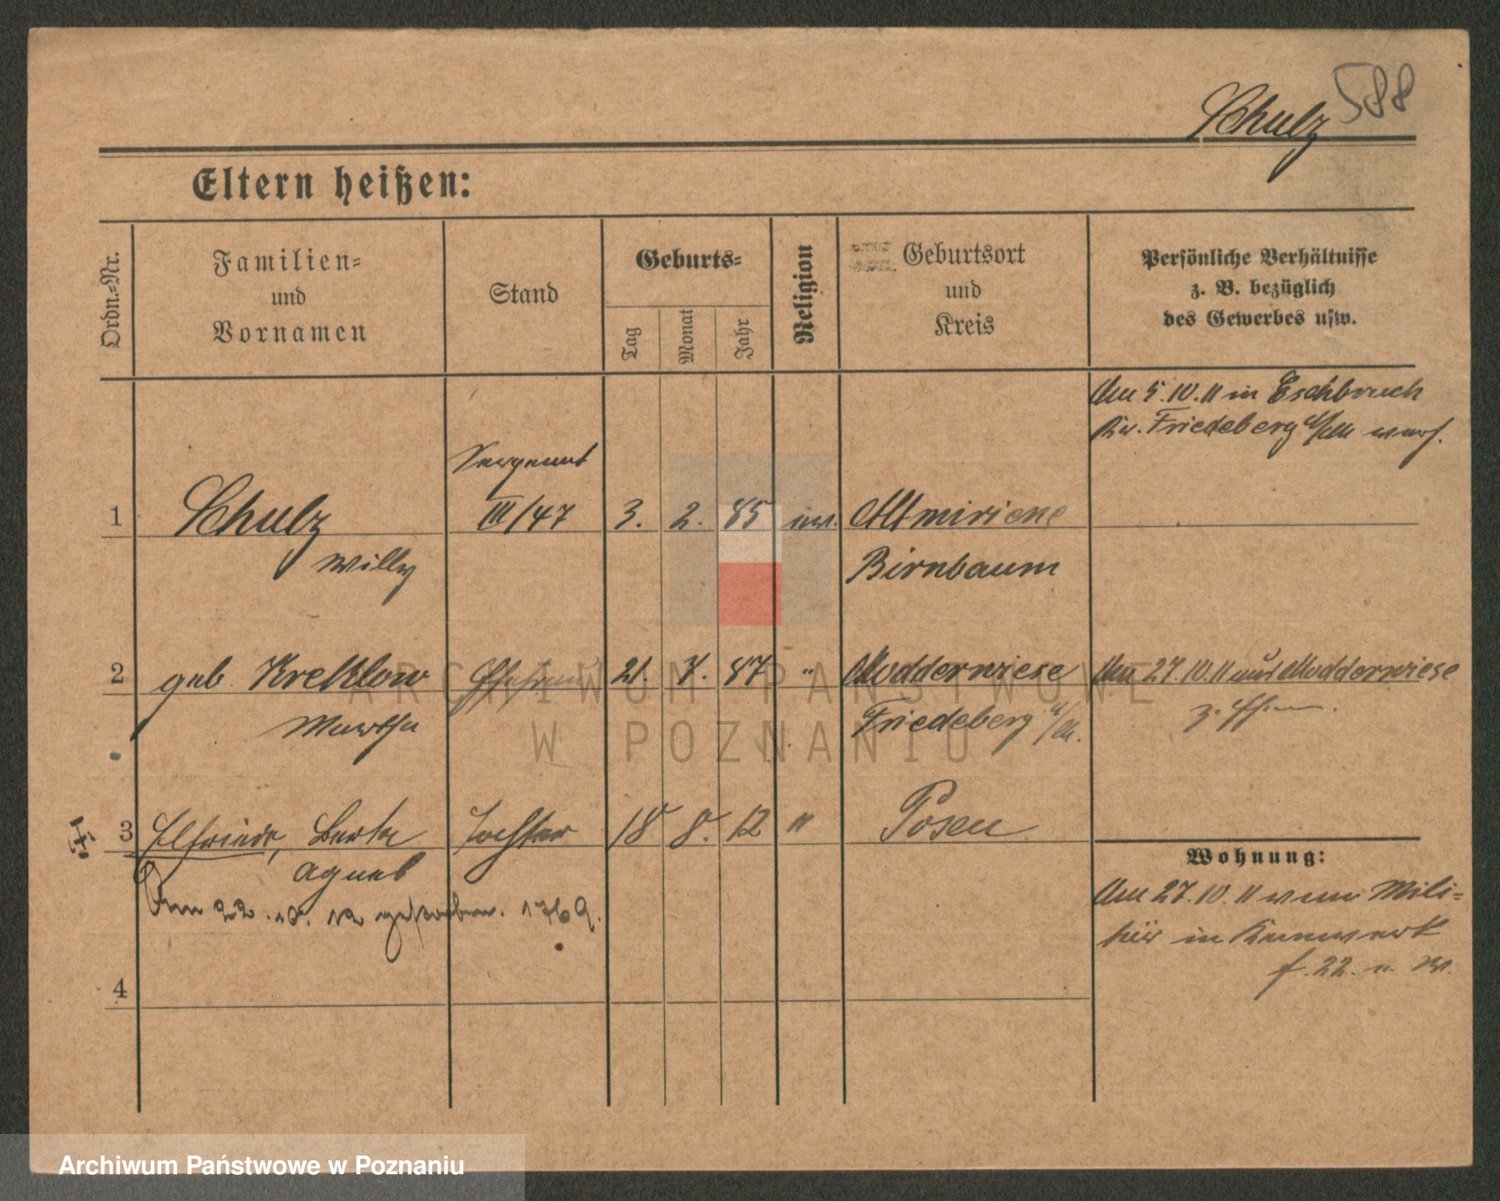 Schulz 588
Eltern heißen:
Ordn.-Nr.
Familien-
und
Vornamen
Stand
Geburts-
Tag
Monat
Jahr
Religion
Geburtsort
und
Kreis
Persönliche Verhältnisse
z. B. bezüglich
des Gewerbes usw.
Am 5.10.11 in Eschbruch
Friedeberg
Sergeant
1 Schulz III/47 3. 2. 85 Altmiriene
Willy Birnbaum
2 geb. Kreklow Ehefrau 21. 87 " Modderwiese Am 27.10.11 aus Modderwiese
Martha Friedeberg
3 Elfriede, Berta Tochter 18 8. 12 " Posen
Agnes
Am 22. 10. 12 gestorben. 1769.
Wohnung:
Am 27.10.11 vom Mili-
tär in Kernwerk
f. 22.
4
ARCHIWUM PAŃSTWOWE
W POZNANIU
Archiwum Państwowe w Poznaniu